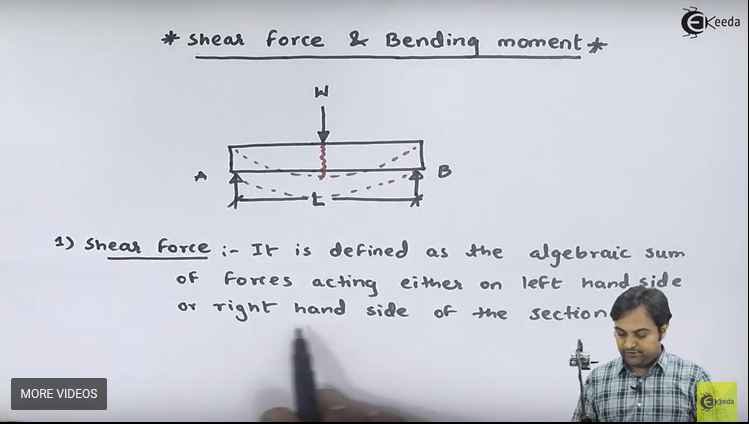 EKeeda
* Shear force & Bending moment *
W
A
B
L
1) Shear force :- It is defined as the algebraic sum
of forces acting either on left hand side
or right hand side of the section
MORE VIDEOS
EKeeda